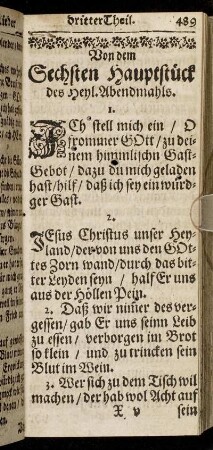 dritter Theil. 489
Von dem
Sechsten Hauptstück
des Heyl. Abendmahls.
1.
ICh stell mich ein / O
frommer GOtt / zu dei-
nem himmlischn Gast-
Gebot / dazu du mich geladen
hast / hilf / daß ich sey ein würd-
ger Gast.
2.
JEsus Christus unser Hey-
land / der von uns den GOt-
tes Zorn wand / durch das bit-
ter Leyden seyn / half Er uns
aus der Höllen Pein.
2. Daß wir nim̃er des ver-
gessen / gab Er uns seinn Leib
zu essen / verborgen im Brot
so klein / und zu trincken sein
Blut im Wein.
3. Wer sich zu dem Tisch wil
machen / der hab wol Acht auf
X v sein